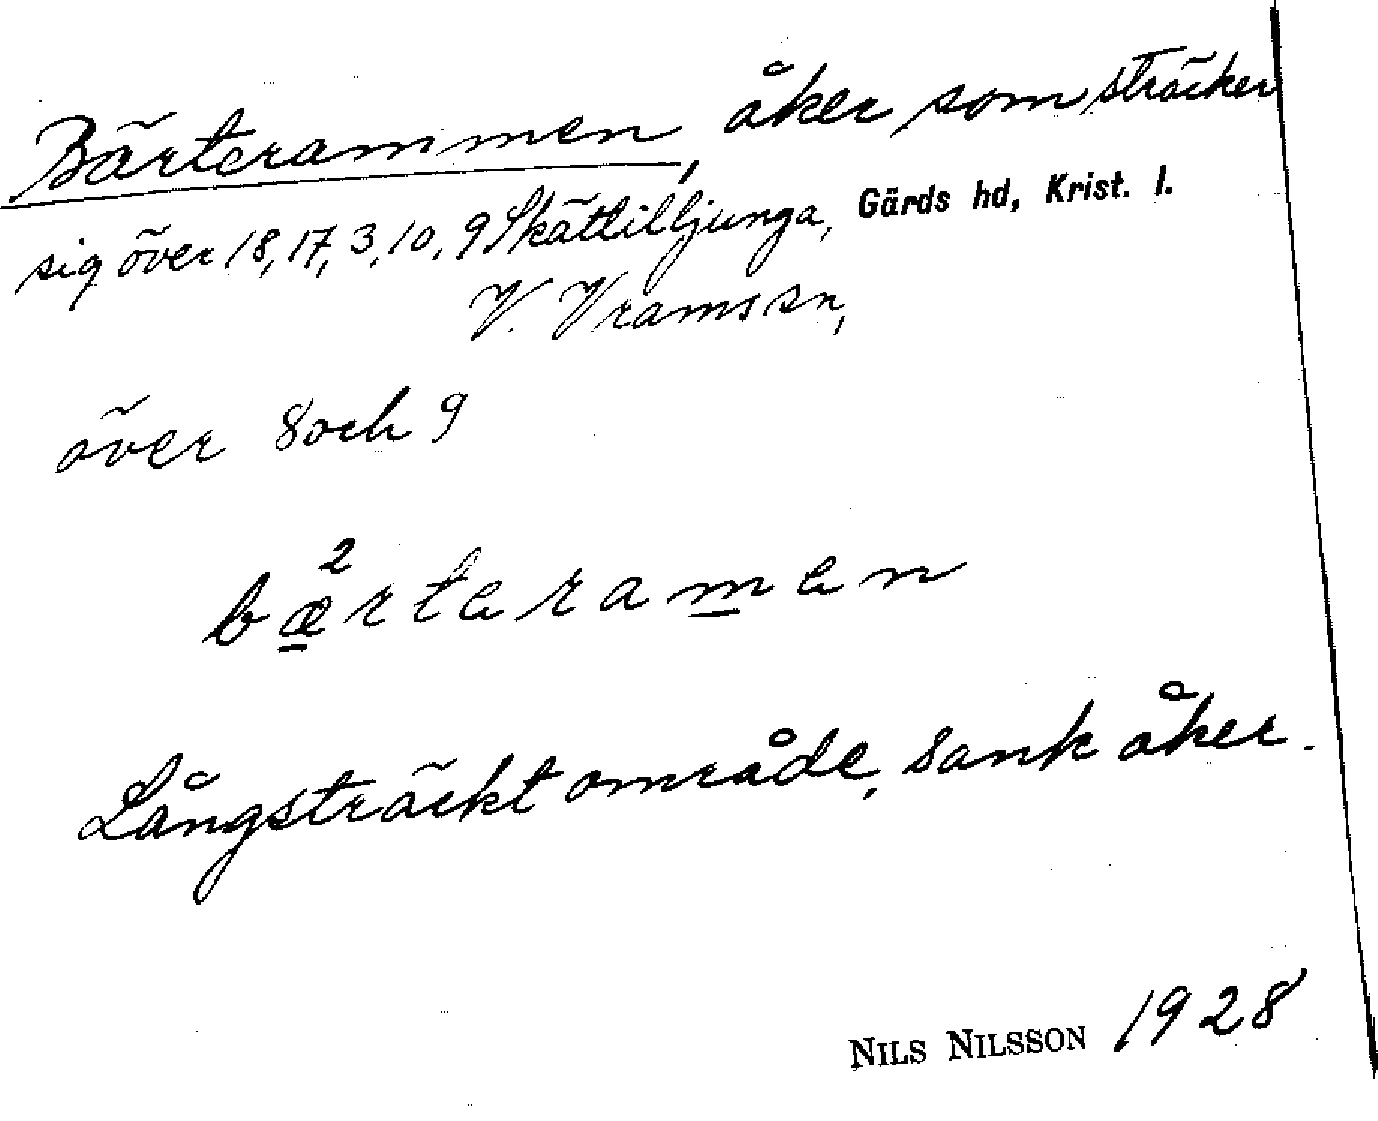 Bärterammen, åker som sträcker
sig över 18, 17, 3, 10, 9 Skättilljunga, Gärds hd, Krist. l.
V. Vrams sn,
över 8 och 9
bæ²rteramen
Långsträckt område, sank åker.
NILS NILSSON 1928